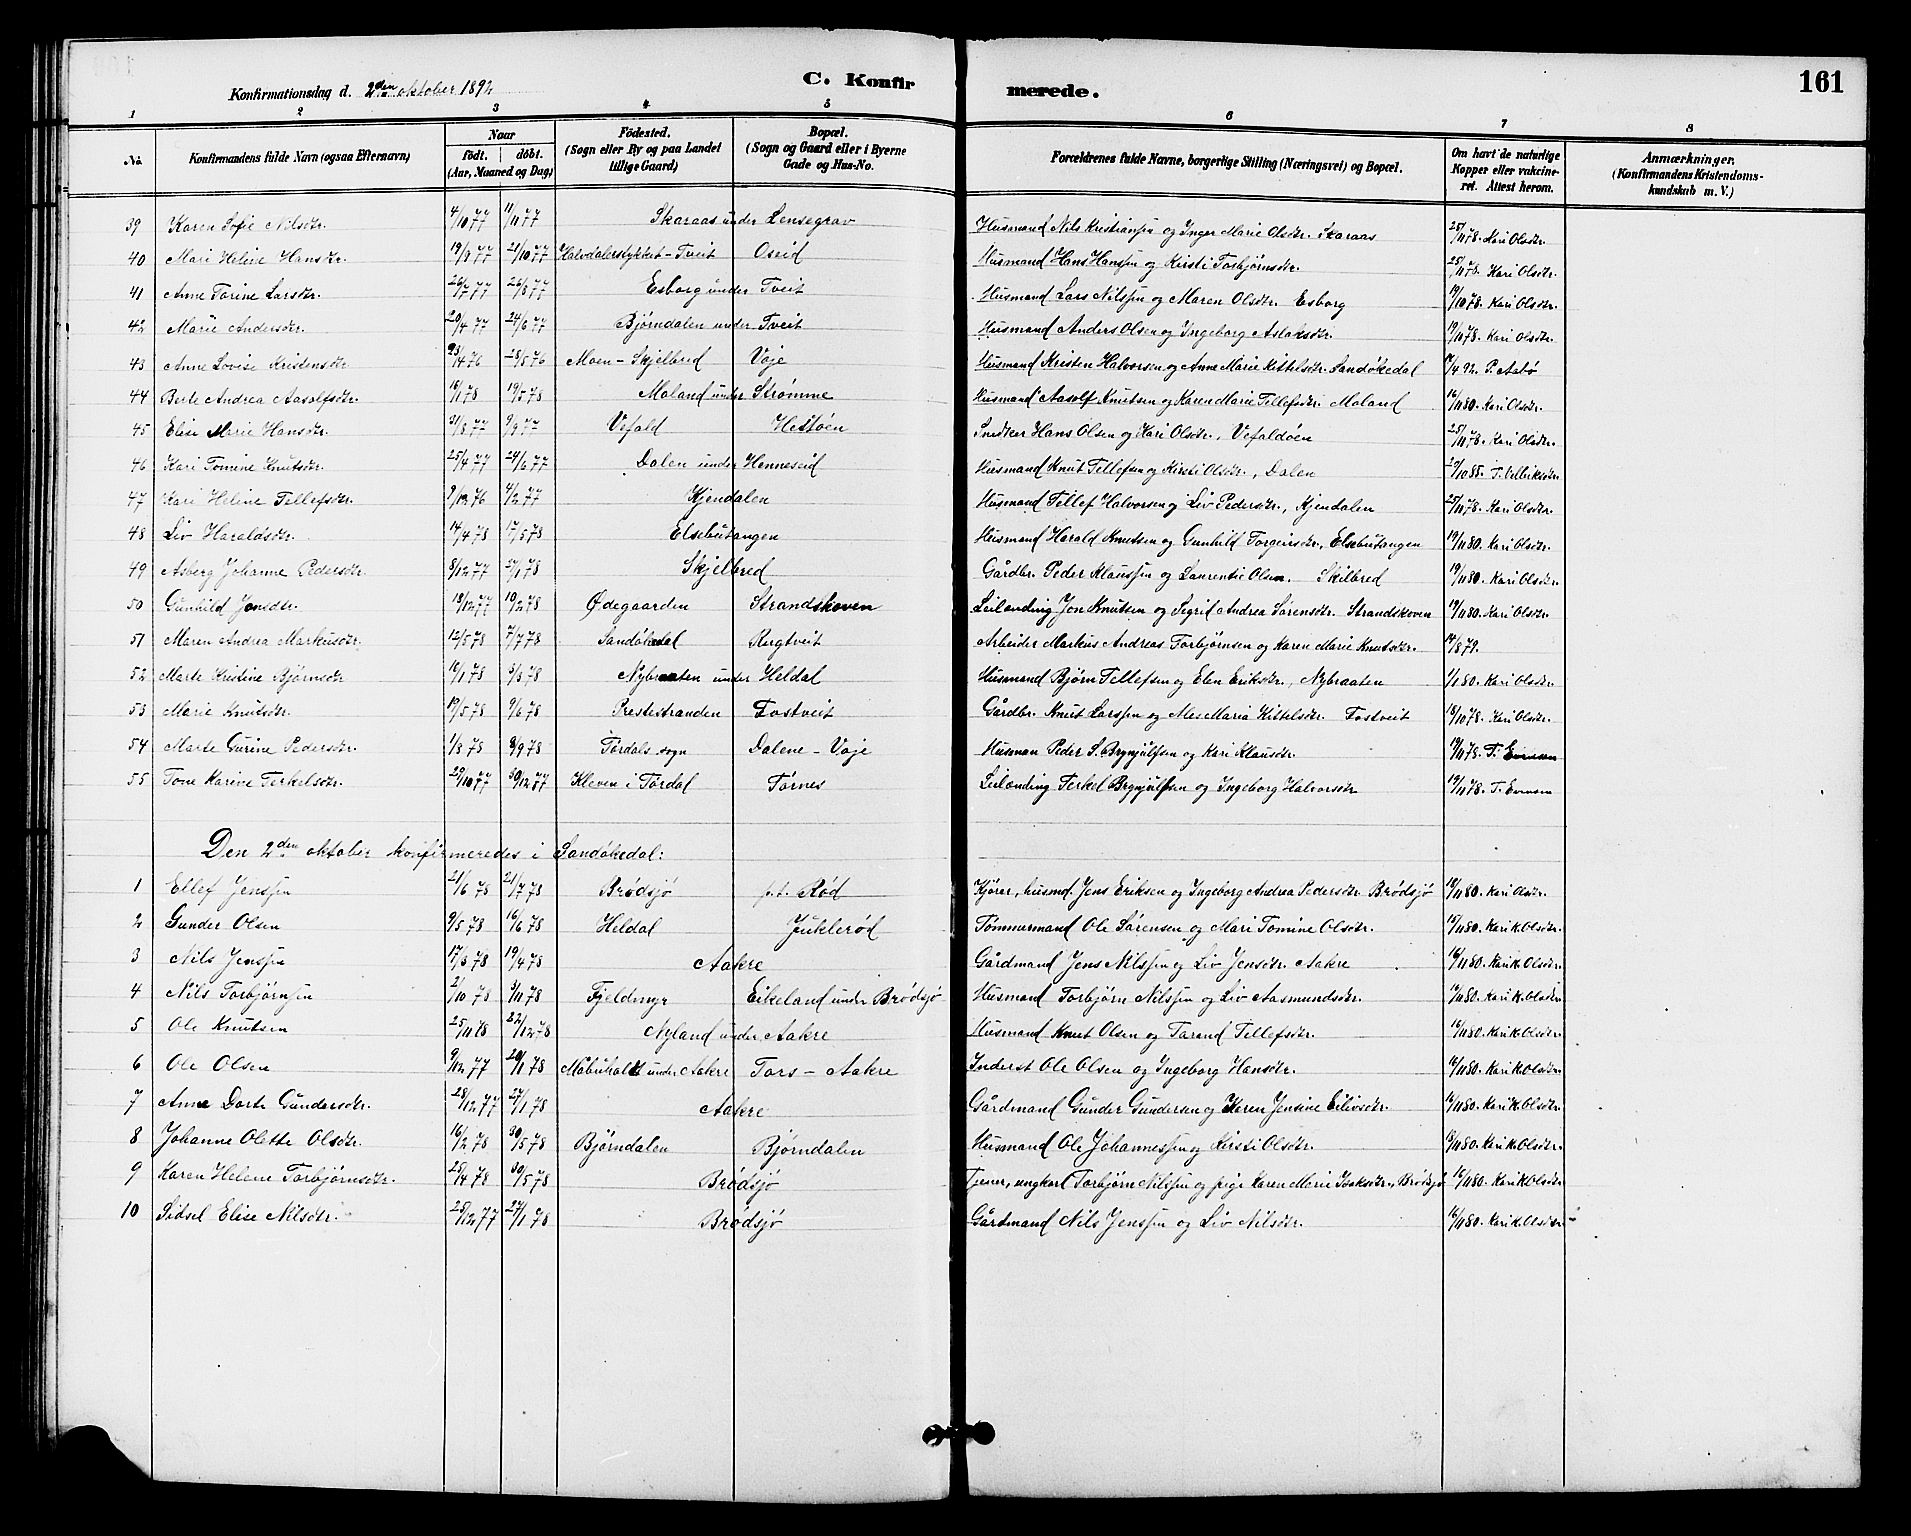 161
Konfirmationsdag d. 2den oktober 1892 C. Konfirmerede.
1 2 3 4 5 6 7 8
No. Konfirmandens fulde Navn (ogsaa Efternavn) Naar födt. döbt. (Aar, Maaned og Dag) Födested. (Sogn eller By og paa Landet tillige Gaard) Bopæl. (Sogn og Gaard eller i Byerne Gade og Hus-No. Forældrenes fulde Navne, borgerlige Stilling (Næringsvei) og Bopæl. Om havt de naturlige Kopper eller vakcineret. Attest herom. Anmærkninger. (Konfirmandens Kristendomskundskab m. V.)
39 Karen Sofie Nilsdtr. 4/10 77 11/11 77 Skaraas under Lensegrav Husmand Nils Kristiansen og Inger Marie Olsdtr. Skaraas 25/11 78. Kari Olsdtr.
40 Mari Heline Hansdtr. 19/9 77 21/10 77 Halvdalsstykket - Tveit Oseid Husmand Hans Hansen og Kirsti Torbjørnsdtr. 25/11 78. Kari Olsdtr.
41 Anne Torine Larsdtr. 26/7 77 26/8 77 Esborg under Tveit Husmand Lars Nilssen og Maren Olsdtr. Esborg 19/10 78. Kari Olsdtr.
42 Marie Andersdtr. 20/4 77 24/6 77 Bjørndalen under Tveit Husmand Anders Olsen og Ingeborg Aslaksdtr. 19/10 78. Kari Olsdtr.
43 Anne Lovise Kristensdtr. 23/4 76 28/5 76 Moen - Skjelbred Voje Husmand Kristen Halvorsen og Anne Marie Kittelsdtr. Sandökedal /4 92. P. Aabö
44 Berte Andrea Aasolfsdtr. 16/1 78 19/5 78 Moland under Strømme Husmand Aasolf Knutsen og Karen Marie Tellefsdtr. Moland 16/11 80. Kari Olsdtr.
45 Elise Marie Hansdtr. 31/8 77 9/9 77 Vefald Hestöen Snedker Hans Olsen og Kari Olsdtr., Vefaldöen 25/11 78. Kari Olsdtr.
46 Kari Tomine Knutsdtr. 25/4 77 24/6 77 Dalen under Henneseid Husmand Knut Tellefsen og Kirsti Olsdtr., Dalen 29/10 85. T. Velleiksdtr.
47 Kari Heline Tellefsdtr. 9/12 76 4/2 77 Kjendalen Husmand Tellef Halvorsen og Liv Pedersdtr., Kjendalen 25/11 78. Kari Olsdtr.
48 Liv Haraldsdtr. 14/4 78 17/5 78 Elsebutangen Husmand Harald Knutsen og Gunhild Torgeirsdtr., Elsebutangen 19/11 80. Kari Olsdtr.
49 Asberg Johanne Pedersdtr. 8/12 77 27/1 78 Skjelbred Gårdbr. Peder Klaussen og Laurentie Olsen. Skilbred 19/11 80. Kari Olsdtr.
50 Gunhild Jonsdtr. 13/12 77 10/2 78 Ødegaarden Strandskoven Leilending Jon Knutsen og Sigrid Andrea Sørensdtr. Strandskoven 19/11 80. Kari Olsdtr.
51 Maren Andrea Markusdtr. 12/5 78 7/7 78 Sandökedal Rugtveit Arbeider Markus Andreas Torbjørnsen og Karen Marie Knutsdtr. 14/8 79.
52 Marte Kristine Bjørnsdtr 16/1 78 3/3 78 Nybraaten under Heldal Husmand Bjørn Tellefsen og Elen Eriksdtr., Nybraaten 1/11 80. Kari Olsdtr.
53 Marie Knutsdtr. 19/5 78 9/6 78 Prestestranden Tostveit Gårdbr. Knut Larssen og Maria Kittelsdtr. Tostveit 18/10 78. Kari Olsdtr.
54 Marte Gurine Pedersdtr. 1/8 78 8/9 78 Tördals sogn Dalene - Voje Husman Peder S. Brynjulfsen og Kari Klausdtr. 19/11 78. T. Evensen
55 Tone Karine Terkelsdtr. 29/10 77 30/12 77 Kleven i Tördal Törnes Leilending Terkel Brynjulfsen og Ingeborg Halvorsdtr 19/11 78. T. Evensen
Den 2den oktober konfirmeredes i Sandökedal:
1 Ellef Jenssen 21/6 78 21/7 78 Brödsjö p.t. Röd Kjörer, husmd. Jens Eriksen og Ingeborg Andrea Pedersdtr. Brödsjö 18/11 80. Kari Olsdtr.
2 Gunder Olsen 9/5 78 16/6 78 Heldal Jukleröd Tömmermand Ole Sörensen og Mari Tomine Olsdtr. 15/11 80. Kari K. Olsdtr.
3 Nils Jenssen 17/3 78 19/4 78 Aakre Gårdmand Jens Nilssen og Liv Jensdtr. Aakre 16/11 80. Kari K. Olsdtr.
4 Nils Torbjørnsen 2/10 78 3/11 78 Fjeldmyr Eikeland under Brödsjö Husmand Torbjørn Nilssen og Liv Aasmundsdtr. 16/11 80. Kari K. Olsdtr.
5 Ole Knutsen 25/11 78 22/12 78 Nyland under Aakre Husmand Knut Olsen og Tarand Tellefsdtr. 16/11 80. Kari K. Olsdtr.
6 Ole Olsen 9/12 77 20/1 78 under Aakre Tors - Aakre Inderst Ole Olsen og Ingeborg Hansdtr. 16/11 80. Kari K. Olsdtr.
7 Anne Dorte Gundersdtr. 28/12 77 27/1 78 Aakre Gårdmand Gunder Gundersen og Karen Jensine Eilivsdtr. 16/11 80. Kari K. Olsdtr.
8 Johanne Olette Olsdtr. 16/2 78 30/5 78 Bjørndalen Bjørndalen Husmand Ole Johannessen og Kirsti Olsdtr. 16/11 80. Kari K. Olsdtr.
9 Karen Helene Torbjørnsdtr. 25/4 78 30/5 78 Brödsjö Tjener, ungkarl Torbjørn Nilssen og pige Karen Marie Isaksdtr., Brödsjö 16/11 80. Kari K. Olsdtr.
10 Sidsel Elise Nilsdtr. 25/12 77 27/1 78 Brödsjö Gårdmand Nils Jenssen og Liv Nilsdtr. 16/11 80. Kari K. Olsdtr.